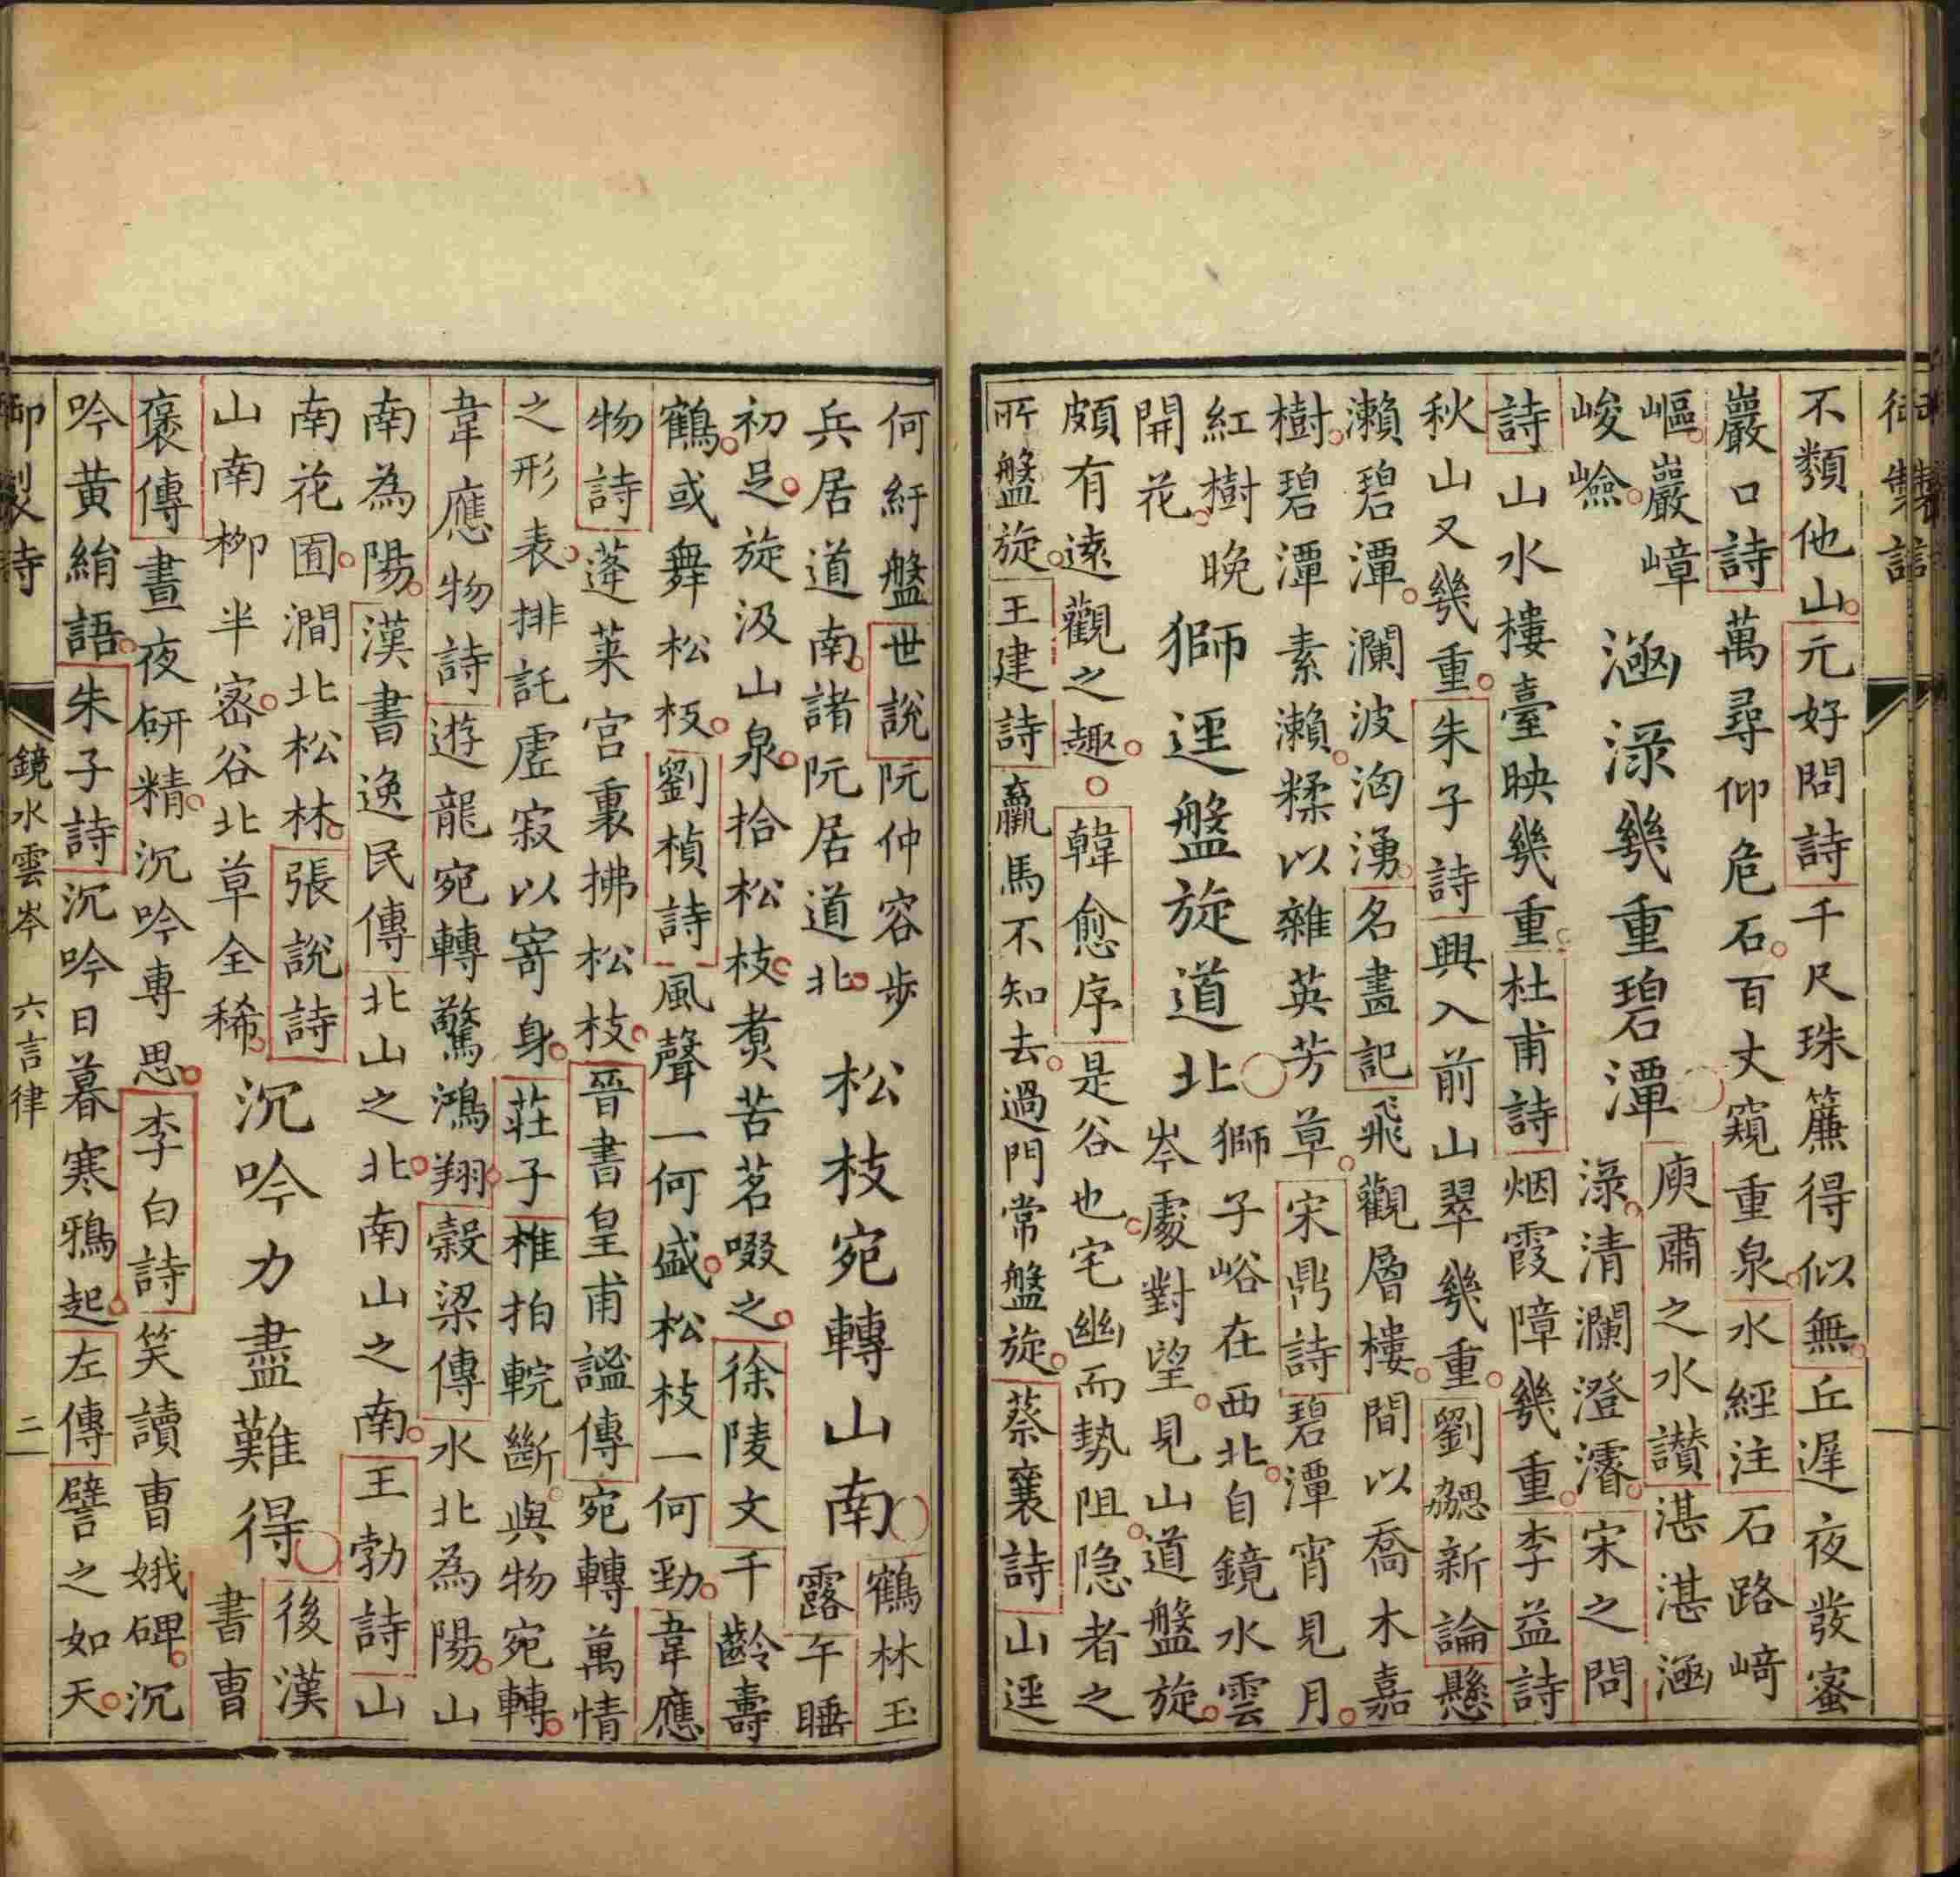 御製詩
不類他山元好問詩千尺珠簾得似無丘遲夜發蜜
巖口詩萬尋仰危石百丈窺重泉水經注石路﨑
嶇巖嶂
峻嶮
涵渌幾重碧潭
庾肅之水讃湛湛涵
渌清瀾澄濬宋之問
詩山水樓臺映幾重杜甫詩烟霞障幾重李益詩
秋山又幾重朱子詩興入前山翠幾重劉勰新論懸
瀨碧潭瀾波洶湧名畫記飛觀層樓間以喬木嘉
樹碧潭素瀨糅以雜英芳草宋鼎詩碧潭宵見月
紅樹晚
開花
獅逕盤旋道北
獅子峪在西北自鏡水雲
岑處對望見山道盤旋
頗有遠觀之趣韓愈序是谷也宅幽而勢阻隐者之
所盤旋王建詩羸馬不知去過門常盤旋蔡襄詩山逕
何紆盤世說阮仲容步
兵居道南諸阮居道北
松枝宛轉山南
鶴林玉
露午睡
初足旋汲山泉拾松枝煑苦茗啜之徐陵文千齡壽
鶴或舞松枝劉楨詩風聲一何盛松枝一何勁韋應
物詩蓬莱宫裏拂松枝晉書皇甫謐傳宛轉萬情
之形表排託虛寂以寄身莊子椎拍輐斷與物宛轉
韋應物詩遊龍宛轉驚鴻翔穀梁傳水北為陽山
南為陽漢書逸民傳北山之北南山之南王勃詩山
南花囿澗北松林張說詩
山南柳半密谷北草全稀
沉吟力盡難得
後漢
書曹
褒傳晝夜研精沉吟専思李白詩笑讀曹娥碑沉
吟黄絹語朱子詩沉吟日暮寒鴉起左傳譬之如天
御製詩
鏡水雲岑 六言律
二